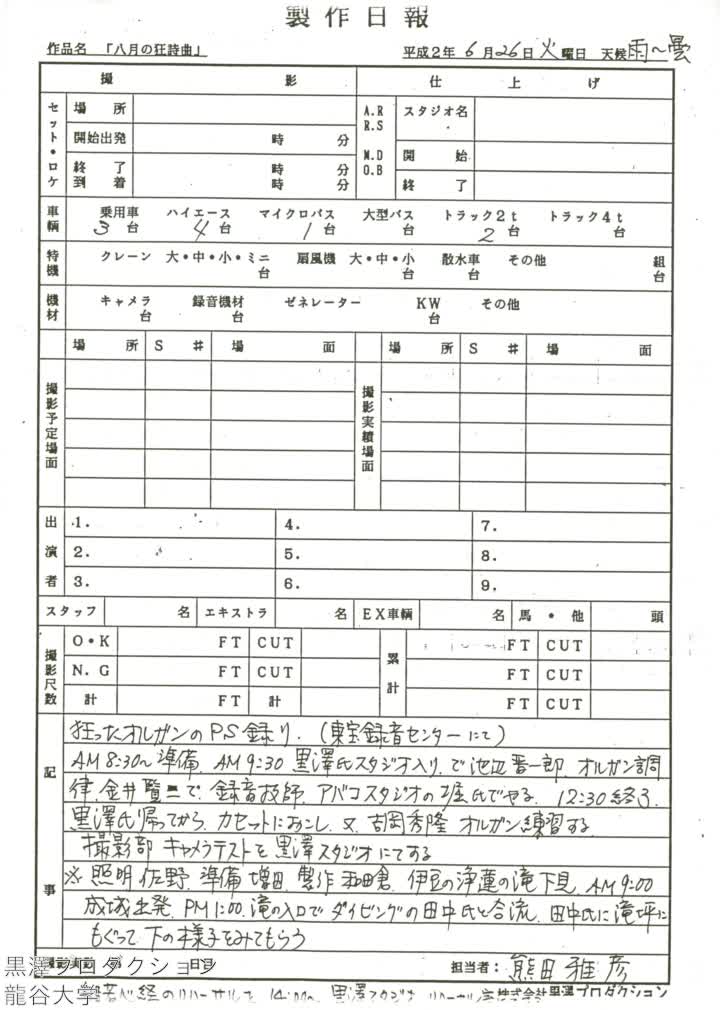 製作日報
作品名 「八月の狂詩曲」 平成2年 6月26日 火曜日 天候 雨〜曇
撮影 仕上げ
セット・ロケ 場所 A.R R.S スタジオ名
開始出発 時 分 M.D O.B 開始
終了 時 分
到着 時 分 終了
車輌 乗用車 3台 ハイエース 4台 マイクロバス 1台 大型バス 台 トラック2t 2台 トラック4t 台
特機 クレーン 大・中・小・ミニ 台 扇風機 大・中・小 台 散水車 台 その他 組 台
機材 キャメラ 台 録音機材 台 ゼネレーター KW 台 その他
場所 S# 場面 場所 S# 場面
撮影予定場面 撮影実績場面
出演者 1. 4. 7.
2. 5. 8.
3. 6. 9.
スタッフ 名 エキストラ 名 EX車輌 名 馬・他 頭
撮影尺数 O・K FT CUT 累計 FT CUT
N.G FT CUT FT CUT
計 FT 計 FT CUT
記事
狂ったオルガンのPS録り.(東宝録音センターにて)
AM8:30〜準備. AM9:30 黒澤氏スタジオ入り. で池辺晋一郎. オルガン調
律. 金井 で. 録音技師. アバコスタジオの 氏でやる. 12:30終了.
黒澤氏帰ってから カセットにおこし. 又. 吉岡秀隆 オルガン練習する.
撮影部 キャメラテストを黒澤スタジオにてする
※照明 佐野. 準備 増田. 製作 和田倉. 伊豆の浄蓮の滝下見. AM9:00
成城出発. PM1:00. 滝の入口でダイビングの田中氏と合流. 田中氏に滝坪に
もぐって下の様子をみてもらう
撮影実動 第 日目 担当者: 熊田雅彦
リハーサル 14:00〜 黒澤スタジオ 株式会社黒澤プロダクション
黒澤プロダクション
龍谷大学